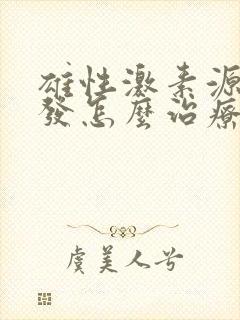 雄性激素源
發怎麼治療
虞美人兮